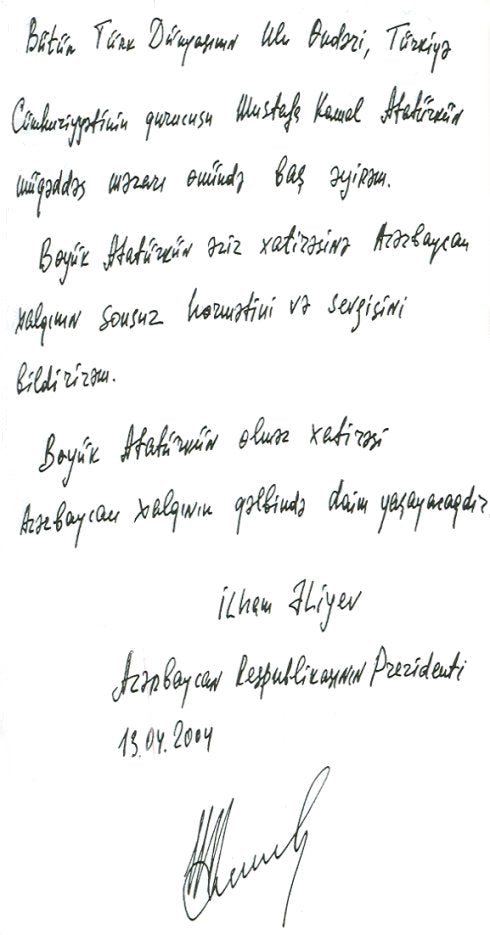 Bütün Türk Dünyasının Ulu Öndəri, Türkiyə
Cümhuriyyətinin qurucusu Mustafa Kamal Atatürkün
müqəddəs məzarı önündə baş əyirəm.
Böyük Atatürkün əziz xatirəsinə Azərbaycan
xalqının sonsuz hörmətini və sevgisini
bildirirəm.
Böyük Atatürkün ölməz xatirəsi
Azərbaycan xalqının qəlbində daim yaşayacaqdır
İlham Əliyev
Azərbaycan Respublikasının Prezidenti
13.04.2004